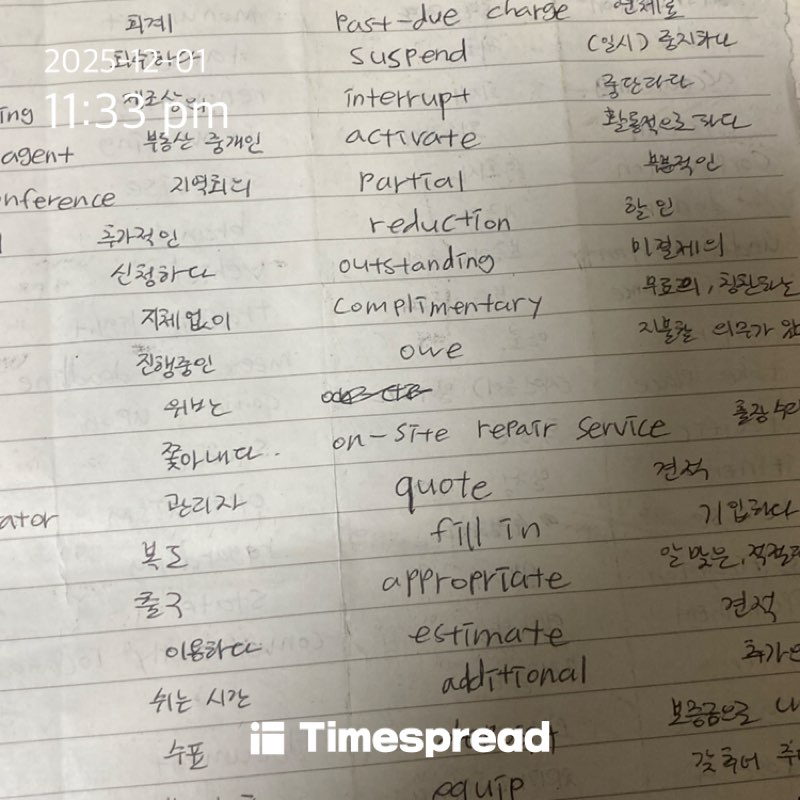 회계 past-due charge 연체료
2025-12-01
suspend (일시) 중지하다
11:33 pm
ing interrupt 중단하다
agent 부동산 중개인 activate 활동적으로 하다
nference 지역회의 partial 부분적인
추가적인 reduction 할인
신청하다 outstanding 미결제의
지체 없이 complimentary 무료의, 칭찬하는
진행중인 owe 지불할 의무가 있
위반
쫓아내다. on-site repair service 출장 수리
관리자 quote 견적
ator 복도 fill in 기입하다
출구 appropriate 알맞은, 적절한
이용하다 estimate 견적
쉬는 시간 additional 추가의
수표 보증금으로
Timespread
equip 갖추어